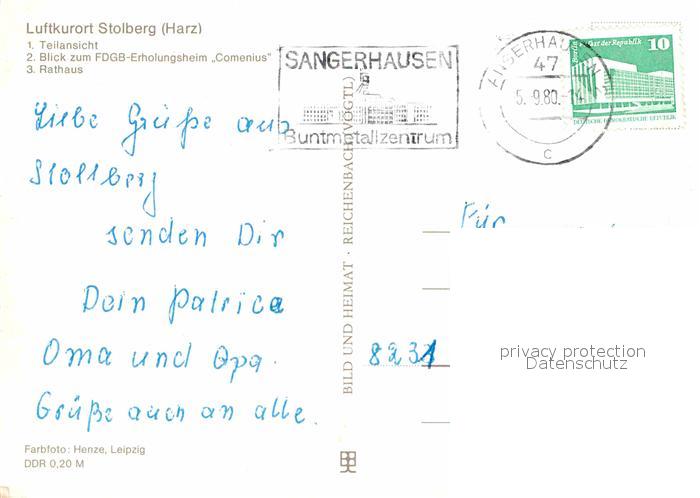 Luftkurort Stolberg (Harz)
1. Teilansicht
2. Blick zum FDGB-Erholungsheim „Comenius"
3. Rathaus
SANGERHAUSEN
Buntmetallzentrum
47
5.-9.80.-14
47
c
Palast der Republik
10
Berlin
DEUTSCHE DEMOKRATISCHE REPUBLIK
Liebe Grüße aus
Stollberg
senden Dir
Dein Patrice
Oma und Opa.
Grüße auch an alle.
Für
8231
BILD UND HEIMAT · REICHENBACH (VOGTL)
privacy protection
Datenschutz
Farbfoto: Henze, Leipzig
DDR 0,20 M